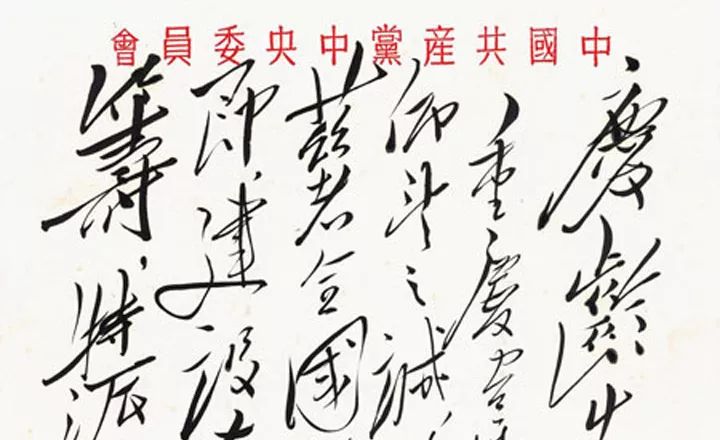 中國共產黨中央委員會
慶齡
重慶違
仰望之誠
兹者全國
即，建設
籌，特派